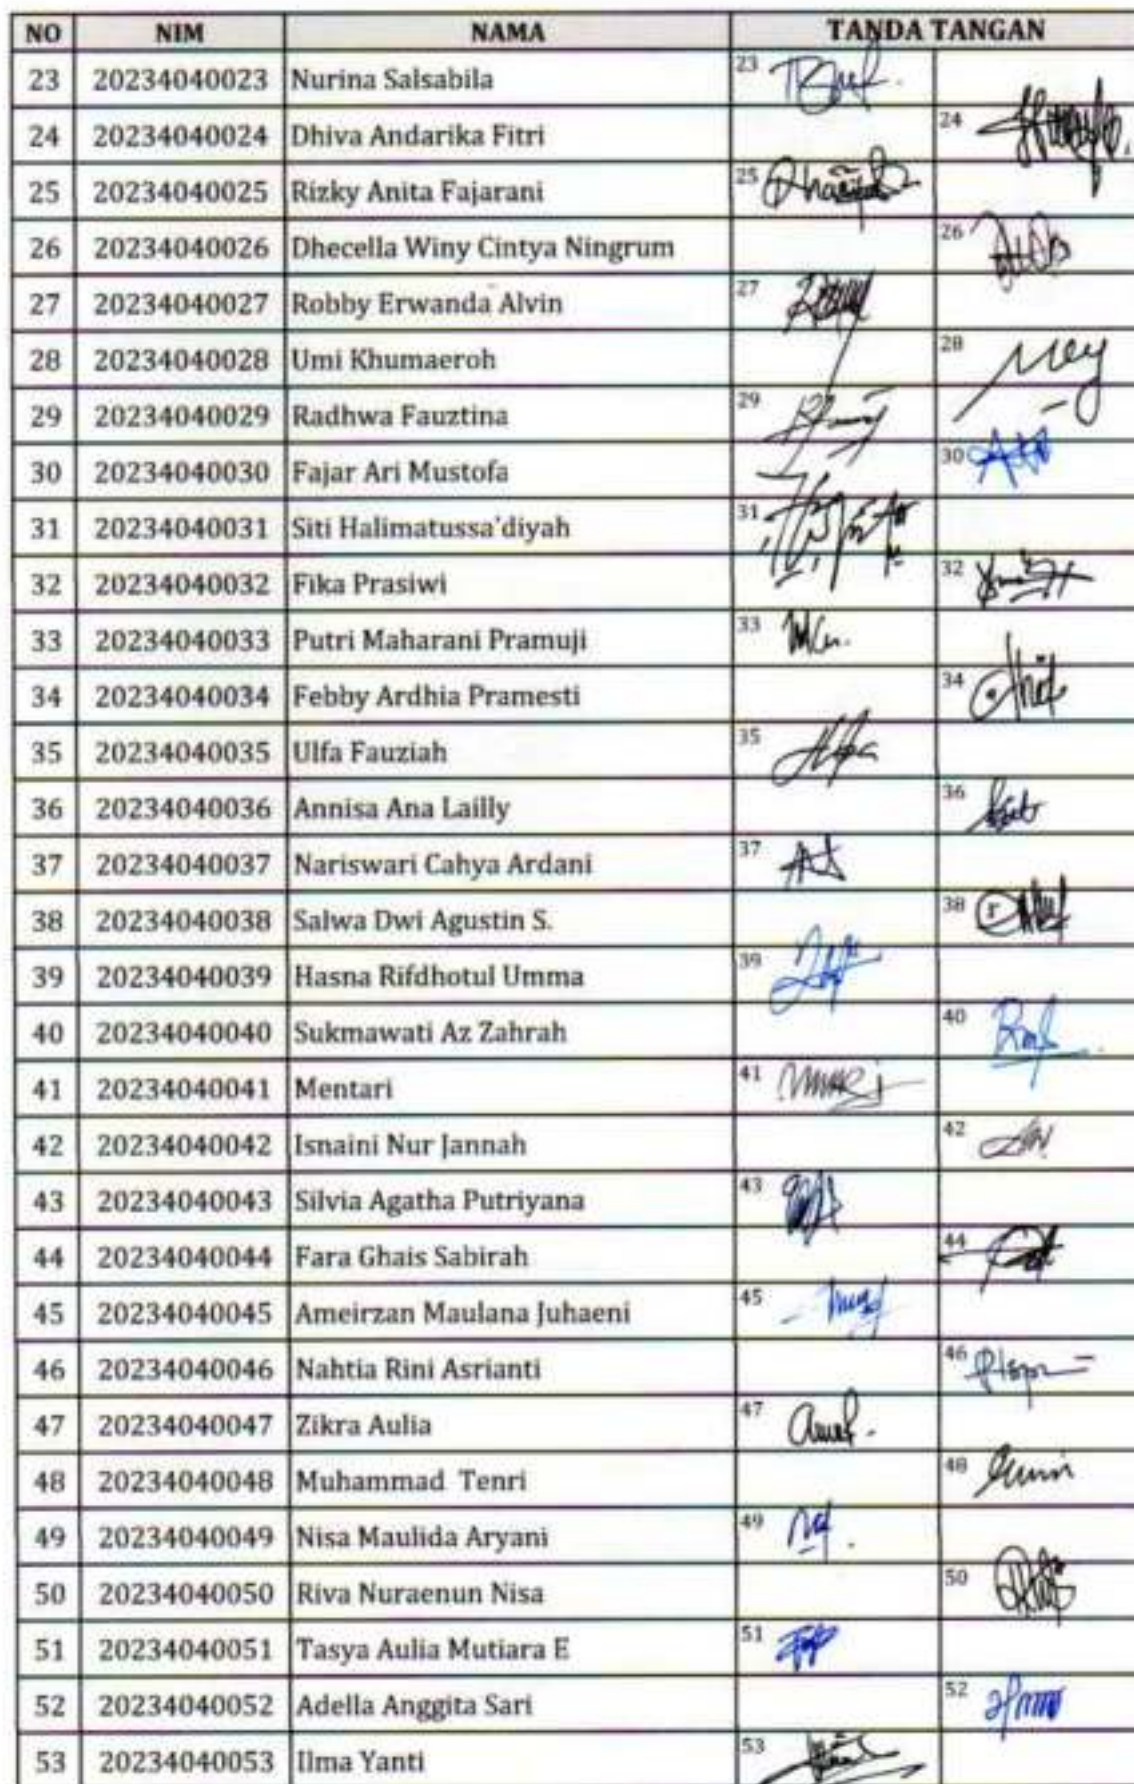 NO NIM NAMA TANDA TANGAN
23 20234040023 Nurina Salsabila 23
24 20234040024 Dhiva Andarika Fitri 24
25 20234040025 Rizky Anita Fajarani 25
26 20234040026 Dhecella Winy Cintya Ningrum 26
27 20234040027 Robby Erwanda Alvin 27
28 20234040028 Umi Khumaeroh 28
29 20234040029 Radhwa Fauztina 29
30 20234040030 Fajar Ari Mustofa 30
31 20234040031 Siti Halimatussa'diyah 31
32 20234040032 Fika Prasiwi 32
33 20234040033 Putri Maharani Pramuji 33
34 20234040034 Febby Ardhia Pramesti 34
35 20234040035 Ulfa Fauziah 35
36 20234040036 Annisa Ana Lailly 36
37 20234040037 Nariswari Cahya Ardani 37
38 20234040038 Salwa Dwi Agustin S. 38
39 20234040039 Hasna Rifdhotul Umma 39
40 20234040040 Sukmawati Az Zahrah 40
41 20234040041 Mentari 41
42 20234040042 Isnaini Nur Jannah 42
43 20234040043 Silvia Agatha Putriyana 43
44 20234040044 Fara Ghais Sabirah 44
45 20234040045 Ameirzan Maulana Juhaeni 45
46 20234040046 Nahtia Rini Asrianti 46
47 20234040047 Zikra Aulia 47
48 20234040048 Muhammad Tenri 48
49 20234040049 Nisa Maulida Aryani 49
50 20234040050 Riva Nuraenun Nisa 50
51 20234040051 Tasya Aulia Mutiara E 51
52 20234040052 Adella Anggita Sari 52
53 20234040053 Ilma Yanti 53